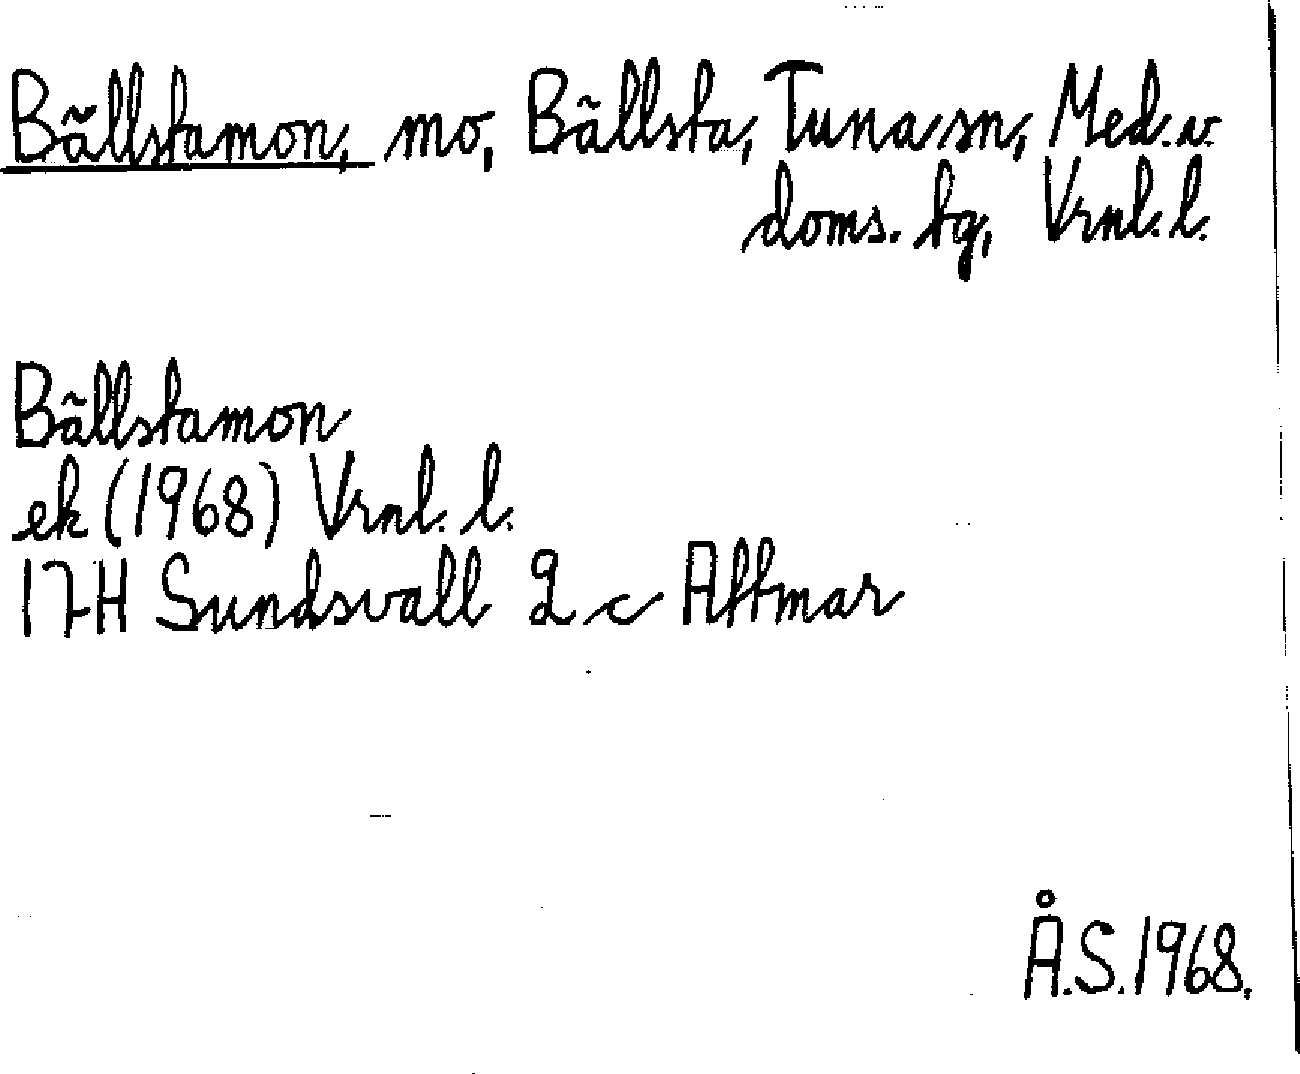 Bällstamon, mo, Bällsta, Tuna sn, Med.v.
doms. tg, Vrnl.l.
Bällstamon
ek (1968) Vrnl. l.
17H Sundsvall 2 c Attmar
Å.S.1968.